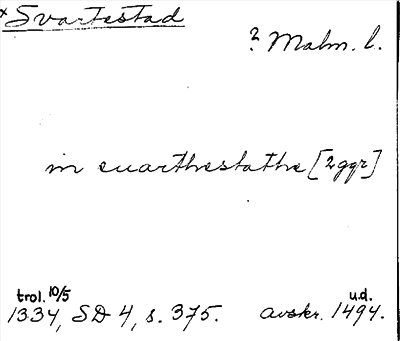 * Svartestad
? Malm. l.
in euarthestathe [2ggr]
trol. 10/5 u.d.
1334, SD 4, s. 375. avskr. 1494.